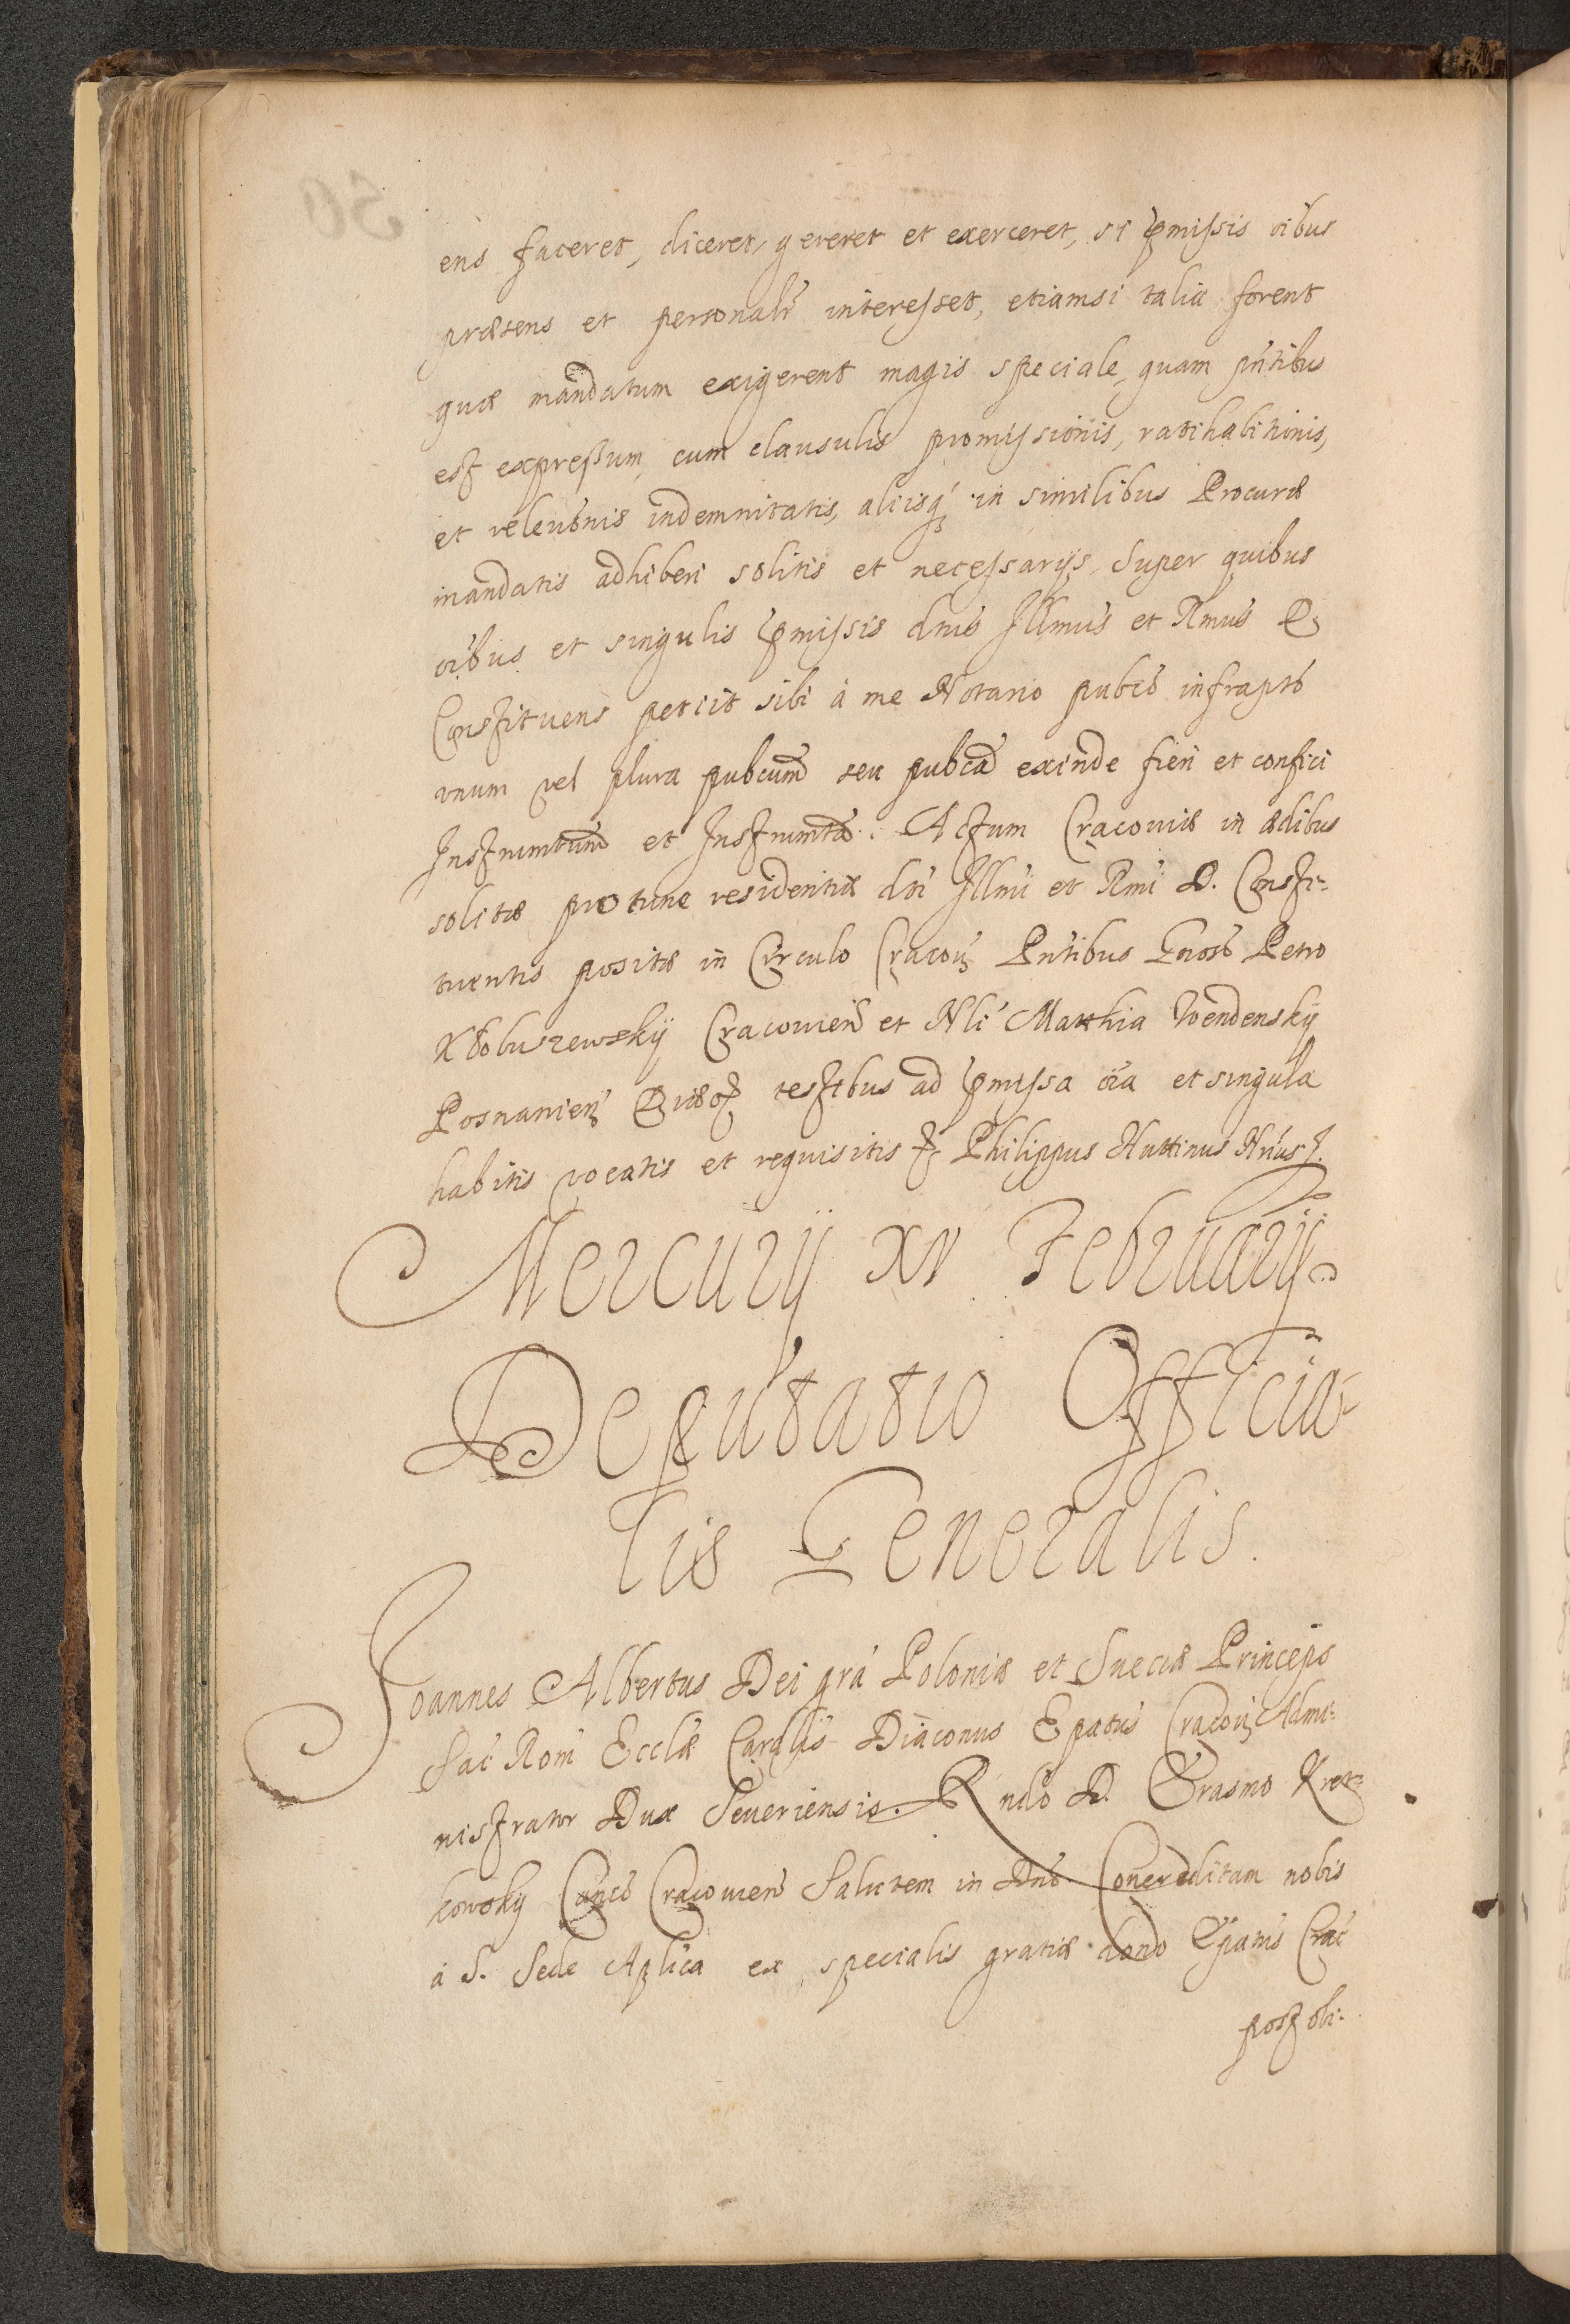 ens faceret, diceret, gereret et exerceret, si pmissis oibus
præsens et personalr interesset, etiamsi talia forent
quæ mandatum exigerent magis speciale, quam pntibus
est expressum, cum clausulis promissionis, ratihabitionis,
et releutnis indemnitatis, aliisq in similibus Procuræ
mandatis adhiberi solitis et necessarijs, Super quibus
oibus et singulis pmissis dnus Illmus et Rmus D.
Constituens petijt sibi à me Notario pubco infrapto
vnum vel plura pubcum seu pubca exinde fieri et confici
Instrumtum et Instrumta. Actum Cracouiæ in ædibus
solitæ protunc residentiæ dti Illmi et Rmi D. Consti-
tuentis positæ in Circulo Cracou Pntibus Gnoso Petro
Cracouien et Nli Matthia Wendensky
Posnanien testibus ad pmissa oia et singula
habitis vocatis et requisitis Philippus Huttinus Nrius
Mercurij XV Februarij
Deputatio Officia-
lis Generalis.
Joannes Albertus Dei gra Poloniæ et Sueciæ Princeps
Sac Rom Ecclæ Cardlis Diaconus Epatus Cracou Admi-
nistrator Dux Seueriensis. Rndo D. Erasmo Kret-
kowsky Canco Cracouien Salutem in Dno. Concreditam nobis
à S. Sede Aplica ex specialis gratiæ dono Epatus Crac